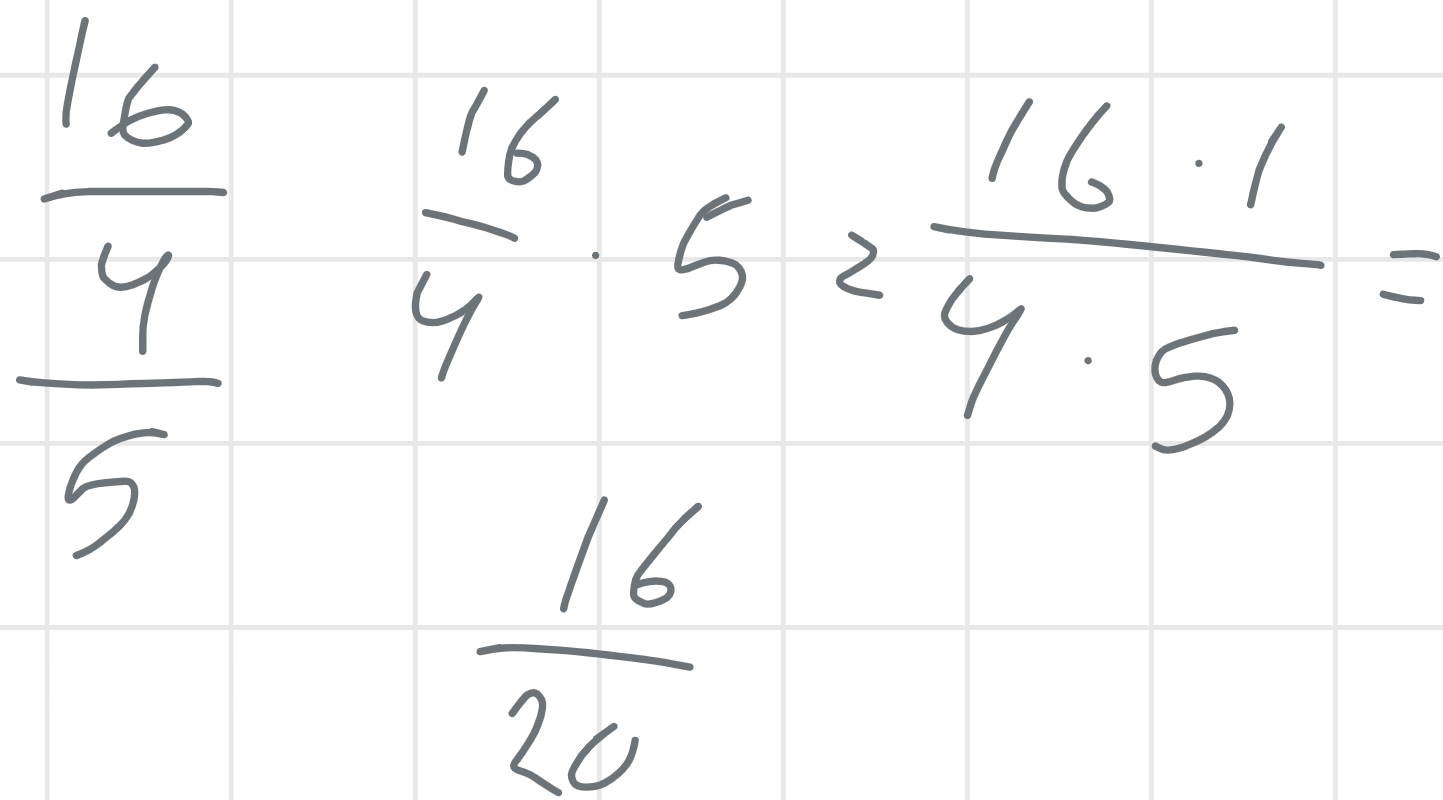 16
4
5
16
4
· 5 =
16 · 1
4 · 5
=
16
20